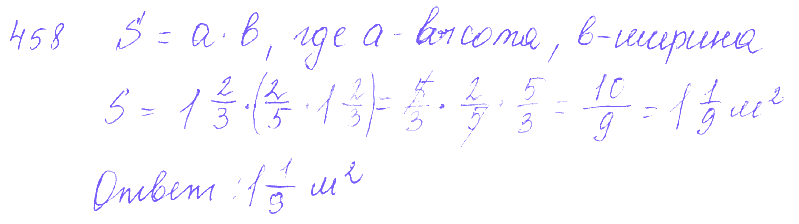 458 S = a · b, где a - высота, b - ширина
S = 1 2/3 · (2/5 · 1 2/3) = 5/3 · 2/5 · 5/3 = 10/9 = 1 1/9 м²
Ответ: 1 1/9 м²